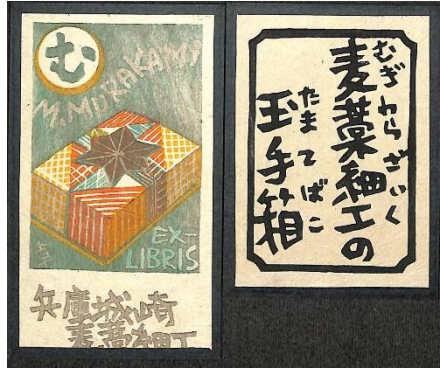 む
M. MURAKAMI
EX-
LIBRIS
兵庫城崎
麦藁細工
むぎわらざいく
麦藁細工の
たまてばこ
玉手箱